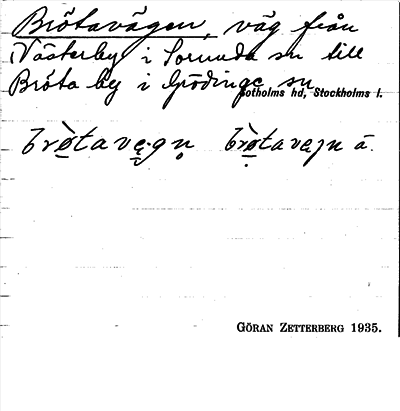 Brötavägen, väg från
Västerby i Sorunda sn till
Bröta by i Grödinge sn
Sotholms hd, Stockholms l.
brø̀tavę·gn̥ brø̀tavęjn ä.
GÖRAN ZETTERBERG 1935.